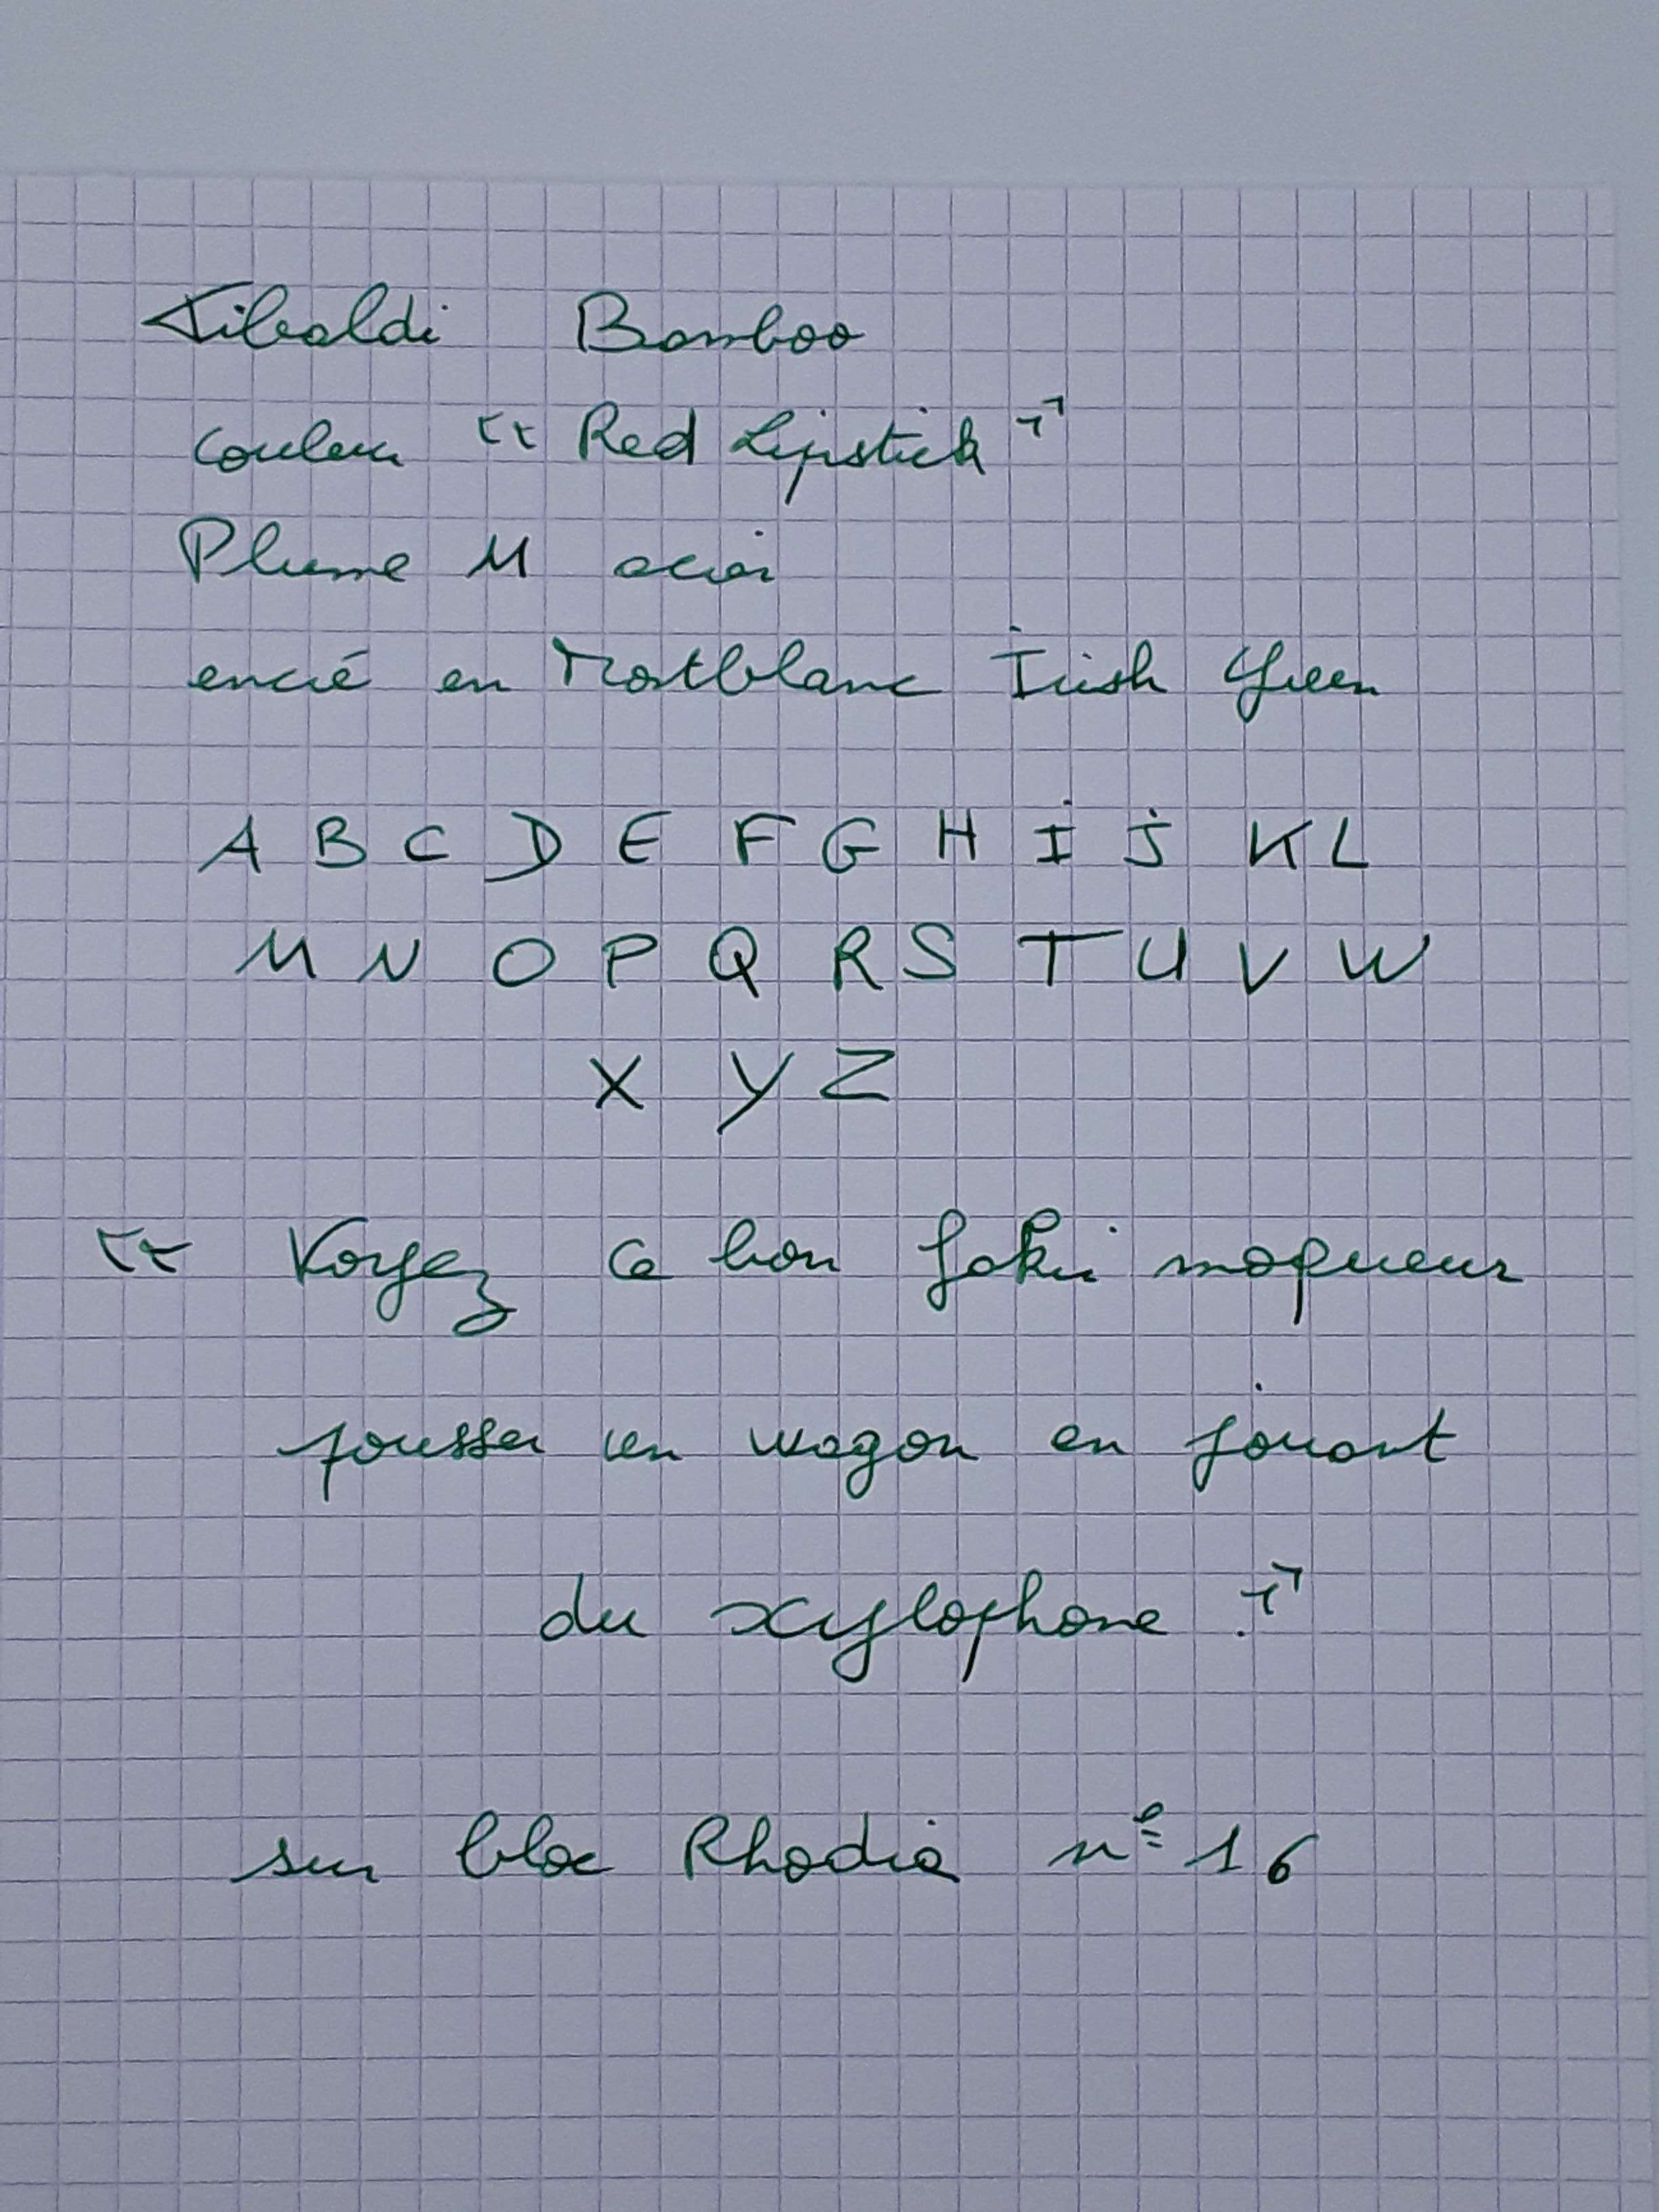 Tibaldi Bamboo
couleur « Red Lipstick »
Plume M acier
encré en Montblanc Irish Green
A B C D E F G H I J K L
M N O P Q R S T U V W
X Y Z
« Voyez ce bon fakir moqueur
pousser un wagon en jouant
du xylophone. »
sur bloc Rhodia n° 16